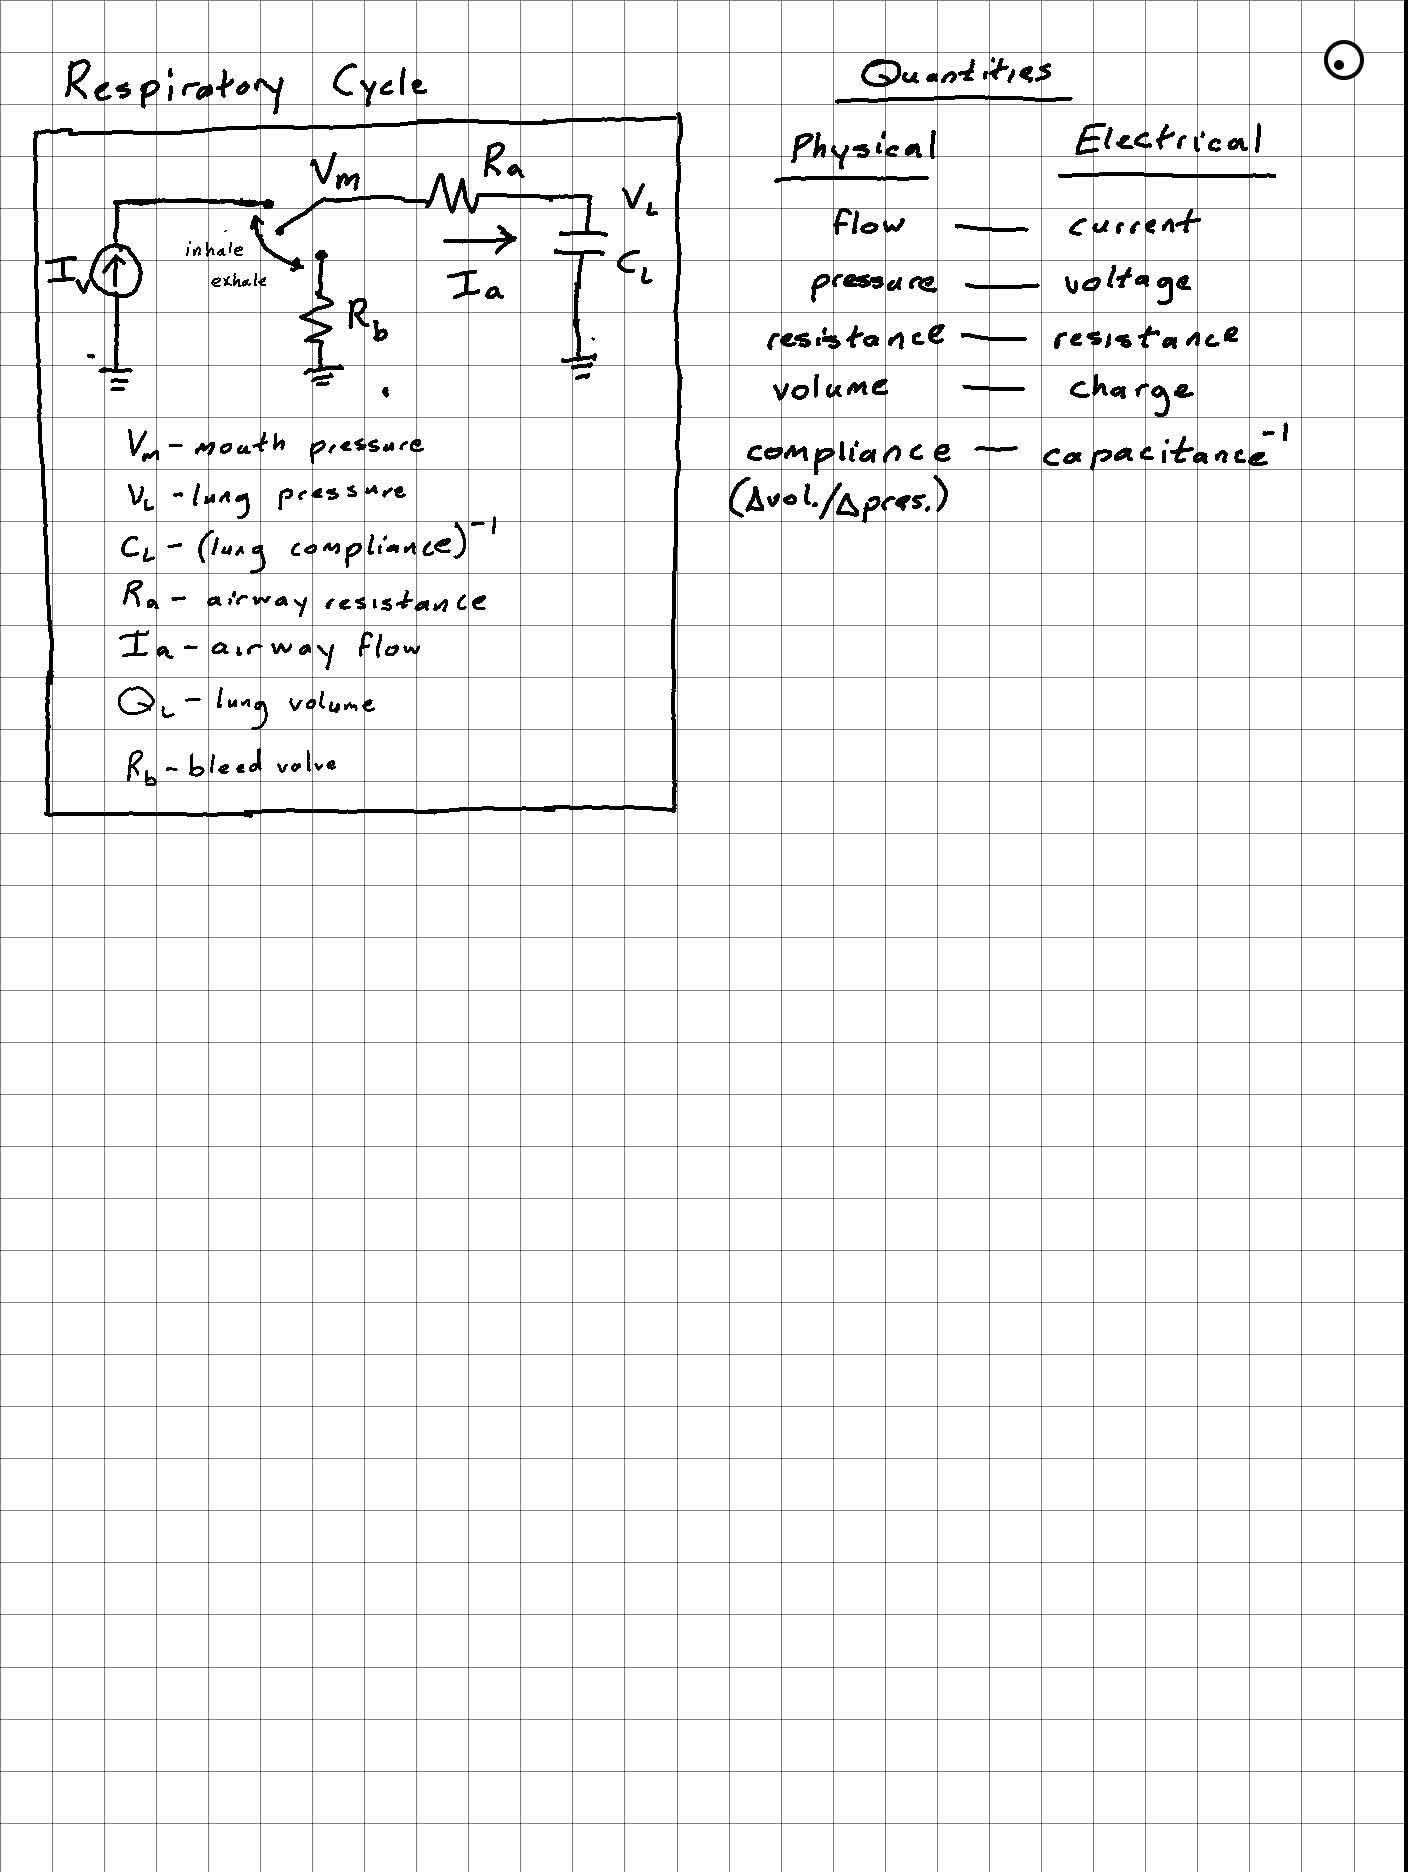 Respiratory Cycle
Vm
Ra
VL
Iv
inhale
exhale
Rb
Ia
CL
Vm - mouth pressure
VL - lung pressure
CL - (lung compliance)^-1
Ra - airway resistance
Ia - airway flow
QL - lung volume
Rb - bleed valve
Quantities
Physical Electrical
flow — current
pressure — voltage
resistance — resistance
volume — charge
compliance — capacitance^-1
(Δvol./Δpres.)